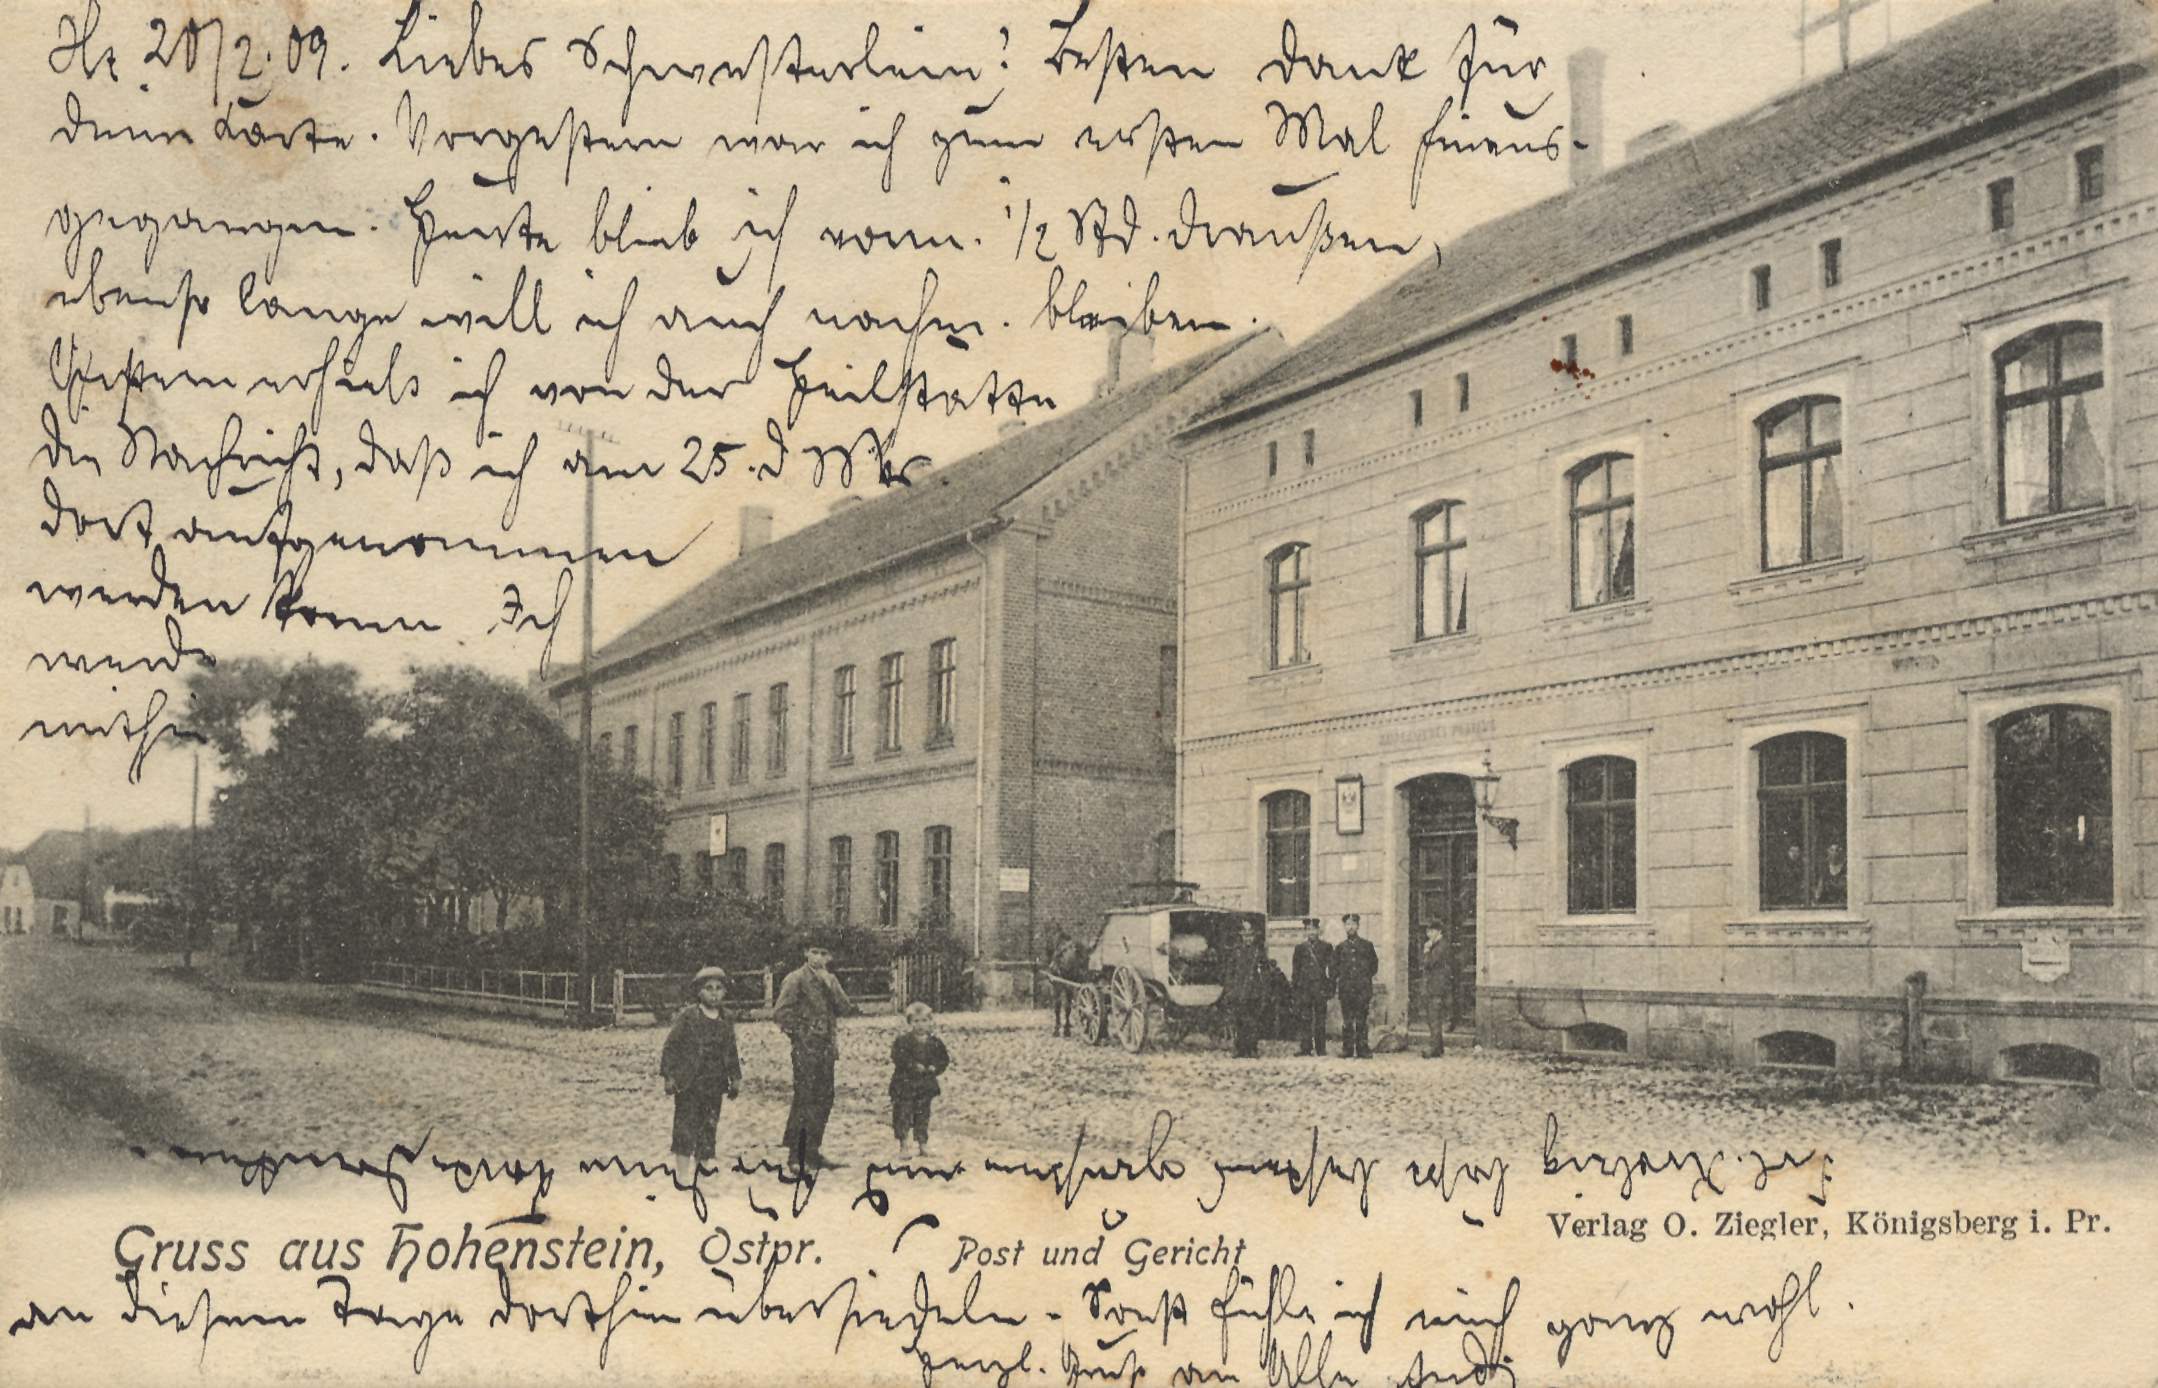 Hr 20/2. 09. Liebes Schwesterlein! Besten Dank für
deine Karte. Vorgestern war ich zum ersten Mal hinaus-
gegangen. Heute blieb ich vorm. 1/2 Std. draußen,
ebenso lange will ich auch nachm. bleiben.
Gestern erhielt ich von der Heilstätte
die Nachricht, daß ich am 25. d Mts
dort aufgenommen
werden kann. Ich
werde
mithin
Frl. läßt bestens grüßen und für deine Karte danken.
Verlag O. Ziegler, Königsberg i. Pr.
Gruss aus Hohenstein, Ostpr. Post und Gericht
an diesem Tage dorthin übersiedeln. Sonst fühle ich mich ganz wohl.
Herzl. Gruß an Alle